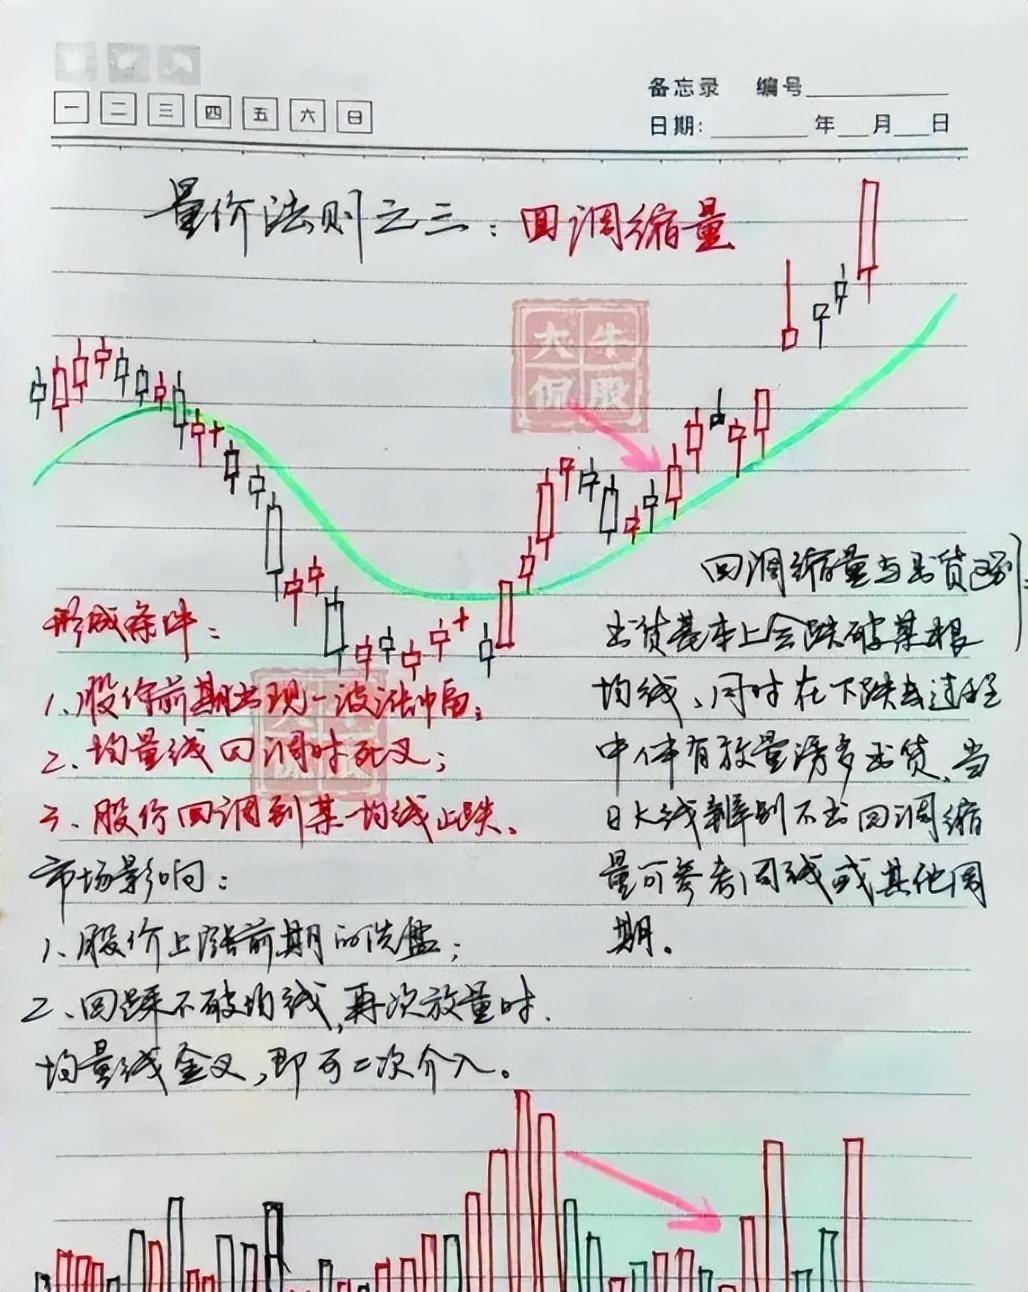 一 二 三 四 五 六 日
备忘录 编号
日期: 年 月 日
量价法则之三：回调缩量
大牛
侃股
回调缩量与出货区别：
出货基本上会跌破某根
均线、同时在下跌去过程
中伴有放量诱多出货，当
日K线辨别不出回调缩
量可参考周线或其他周
期。
形成条件：
1、股价前期出现一波涨幅；
2、均量线回调时死叉；
3、股价回调到某一均线止跌。
市场影响：
1、股价上涨前期的洗盘；
2、回踩不破均线，再次放量时．
均量线金叉，即可二次介入。
大牛
侃股